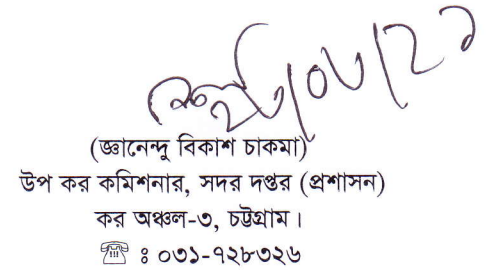 (জ্ঞানেন্দু বিকাশ চাকমা)
উপ কর কমিশনার, সদর দপ্তর (প্রশাসন)
কর অঞ্চল-৩, চট্টগ্রাম।
☎ ঃ ০৩১-৭২৮৩২৬